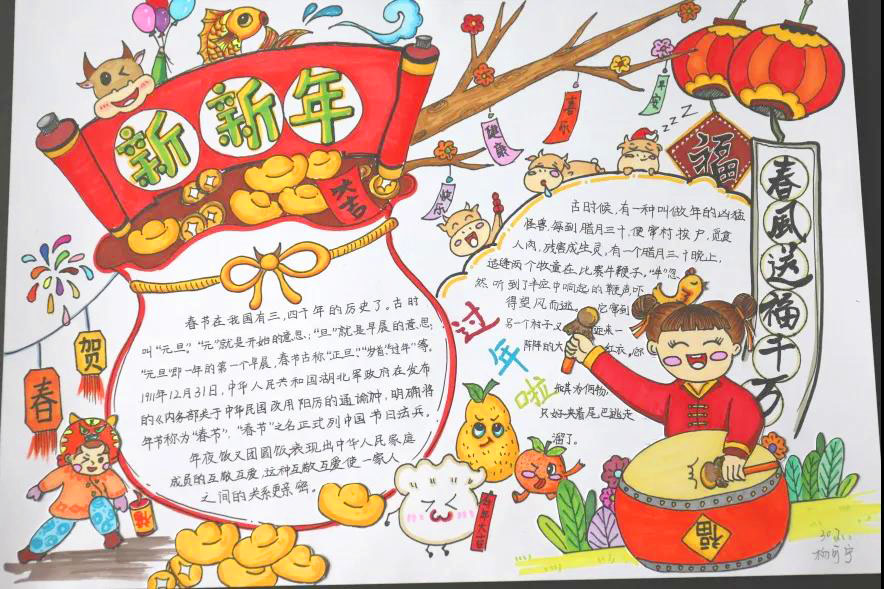 新新年
大吉
健康
喜乐
平安
福
春风送福千万
贺
春
春节在我国有三,四千年的历史了。古时
叫“元旦”。“元”就是开始的意思;“旦”就是早晨的意思;
“元旦”即一年的第一个早晨,春节古称“正旦”、“岁首”“过年”等。
1911年12月31日,中华人民共和国湖北军政府在发布
的《内务部关于中华民国改用阳历的通谕》中,明确将
年节称为“春节”,“春节”之名正式列中国节日法兵。
年夜饭又团圆饭表现出中华人民家庭
成员的互敬互爱,这种互敬互爱使一家人
之间的关系更亲密。
古时候,有一种叫做年的凶猛
怪兽,每到腊月三十,便窜村挨户,觅食
人肉,残害成生灵,有一个腊月三十晚上,
适逢两个牧童在比赛牛鞭子,“年”忽
然听到了半空中响起的鞭声吓
得望风而逃。它窜到
另一个村子又迎来一
阵阵的大红衣。
知其为何物,
只好夹着尾巴逃走
溜了。
过年啦
大吉
福